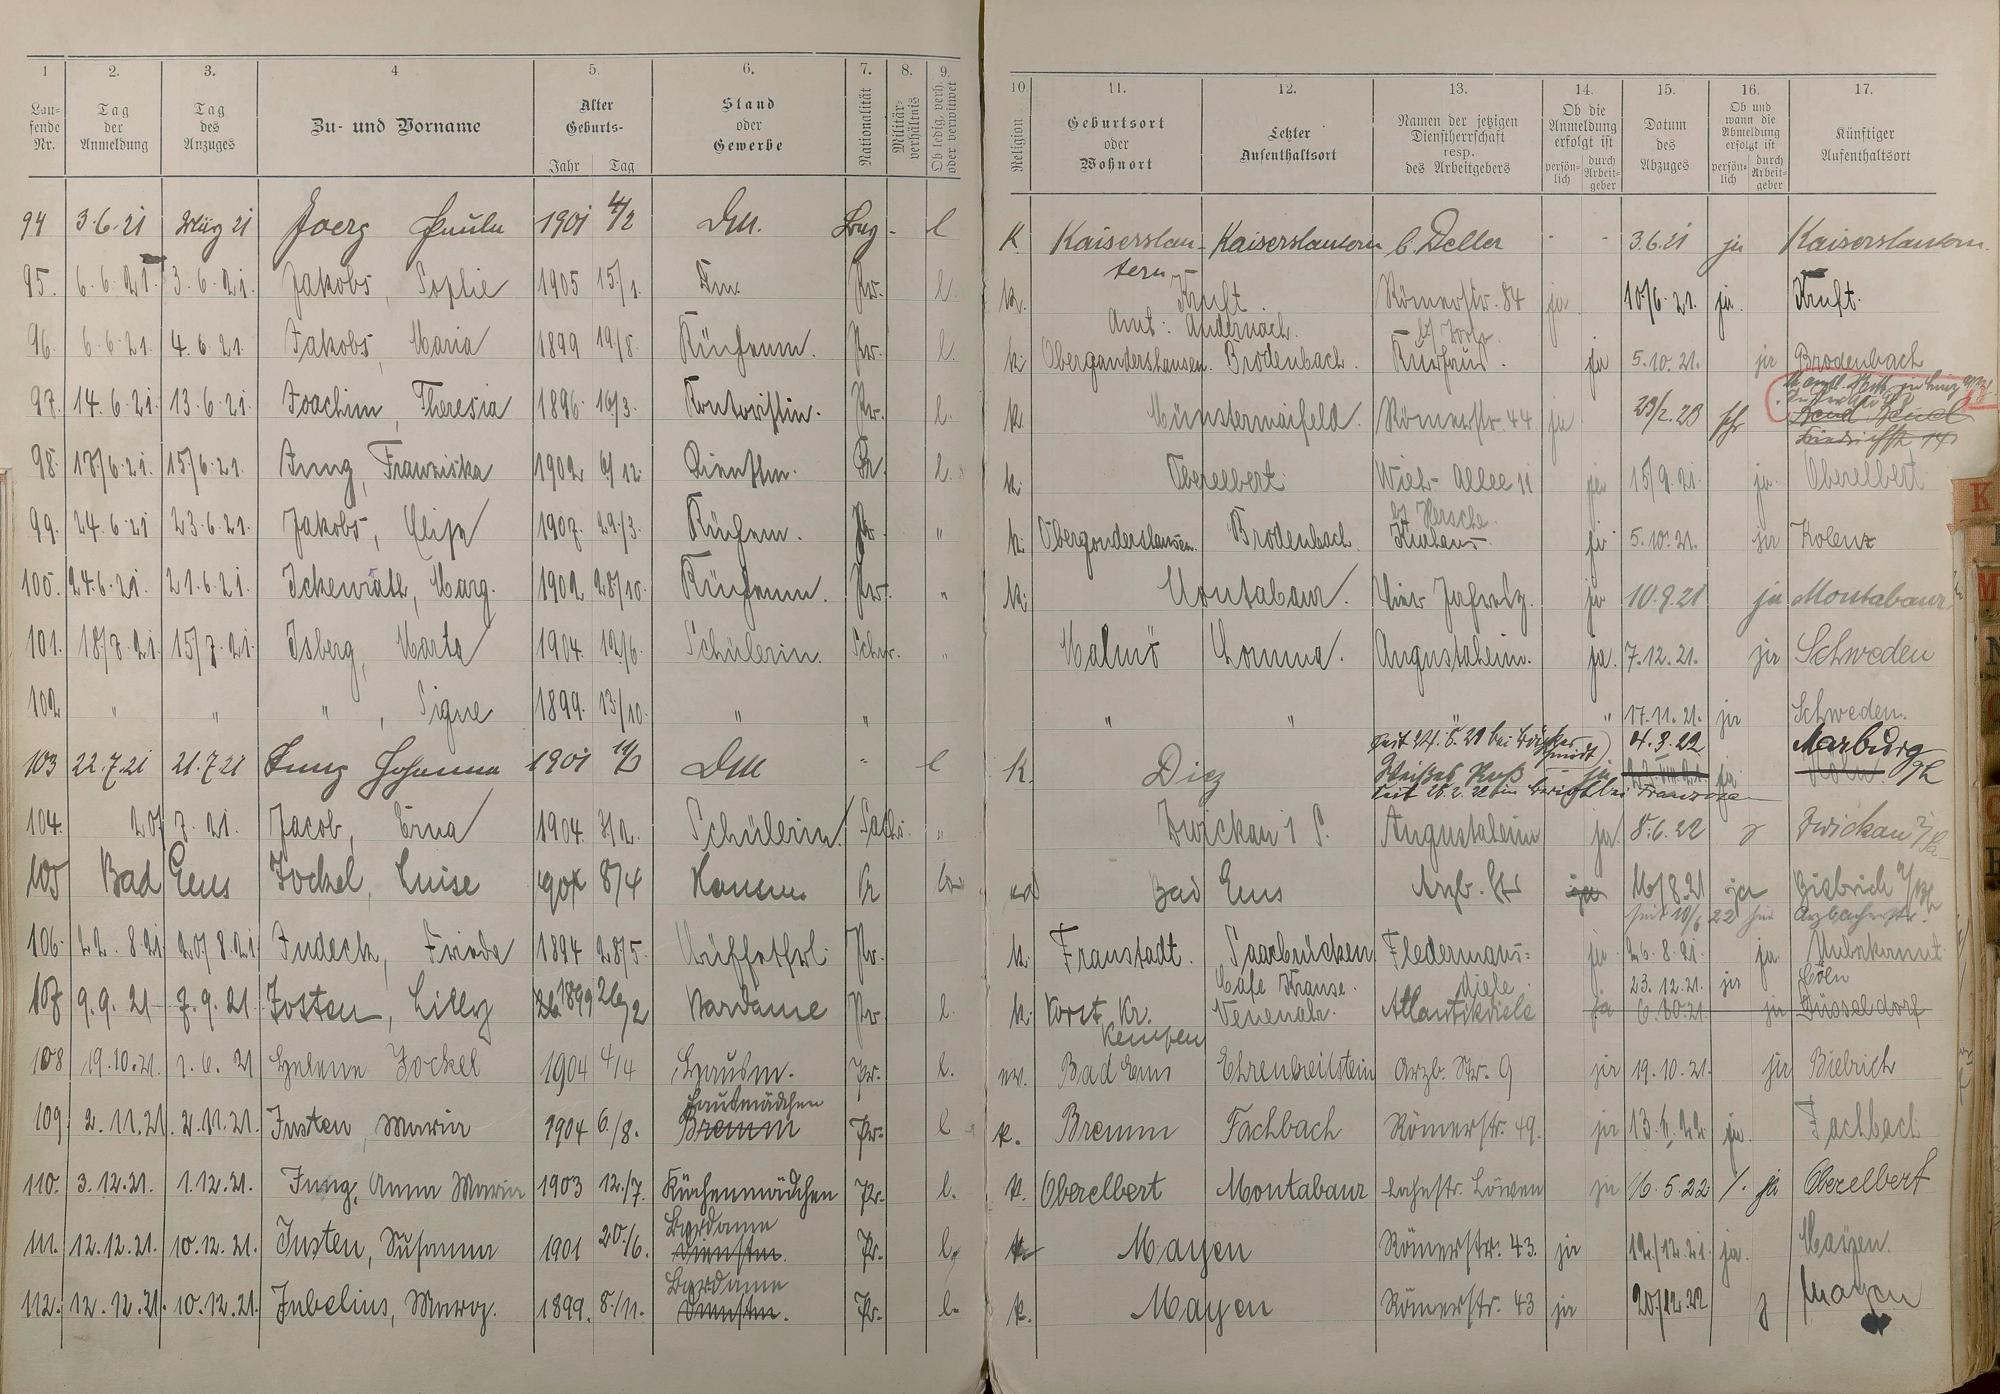 1 2. 3. 4 5. 6. 7. 8. 9. 10 11. 12. 13. 14. 15. 16. 17.
Lau-
fende
Nr.
Tag
der
Anmeldung
Tag
des
Anzuges
Zu- und Vorname
Alter
Geburts-
Jahr Tag
Stand
oder
Gewerbe
Nationalität
Militär-
verhältnis
Ob ledig, verh.
oder verwitwet
Religion
Geburtsort
oder
Wohnort
Letzter
Aufenthaltsort
Namen der jetzigen
Dienstherrschaft
resp.
des Arbeitgebers
Ob die
Anmeldung
erfolgt ist
persön-
lich
durch
Arbeit-
geber
Datum
des
Abzuges
Ob und
wann die
Abmeldung
erfolgt ist
persön-
lich
durch
Arbeit-
geber
Künftiger
Aufenthaltsort
94 3.6.21 März 21 Joerg Paula 1901 4/2 DM. - l K Kaiserslau- Kaiserslautern C. Deller - - 3.6.21 ja Kaiserslautern
tern
95. 6.6.21. 3.6.21. Jakobs, Sophie 1905 15/1. Dm. Pr. l. k. Kruft Römerstr. 84 ja 10/6.21. ja. Kruft.
Amt: Andernach.
96. 6.6.21. 4.6.21. Jakobs, Maria 1899 19/8. Küchenm. Pr. l. k. Obergondershausen. Brodenbach. Kurhaus. ja 5.10.21. ja Brodenbach
97. 14.6.21. 13.6.21. Joachim, Theresia 1896 16/3. Kontoristin. Pr. l. k. Münstermaifeld. Römerstr. 44 ja 23/2.23
98. 17/6.21. 15/6.21. Jung, Franziska 1902 6/12. Dienstm. Pr. l. k. Oberelbert. Allee 11 ja 15/9.21. ja. Oberelbert
99. 24.6.21 23.6.21. Jakobs, Elise 1907. 29/3. Küchenm. Pr. " k. Obergondershausen. Brodenbach. Kurhaus. ja 5.10.21. ja Kolenz
100. 24.6.21. 21.6.21. Ickenrath, Marg. 1902 28/10. Küchenm. Pr. " k. Montabaur. ja 10.9.21 ja Montabaur
101. 18/7.21. 15/7.21. Isberg, Marta 1904. 12/6. Schülerin. Schw. " Malmö Lomma. Augustaheim. ja. 7.12.21. ja Schweden
102 " " ", Signe 1899. 13/10. " " " " " " 17.11.21. ja Schweden.
103 22.7.21 21.7.21 Jung Johanna 1901 DM " l K. Diez 4.3.22 Marburg
104. 20/7.21. Jacob, Erna 1904. Schülerin. " Zwickau i S. Augustaheim ja 8.6.22 Zwickau
105 Bad Ems Jockel, Luise 1904 8/4 Bad Ems Arzb. Str 16/8.21 ja Biebrich
Arzbacherstr.
106. 22.8.21 20/8.21 Judeck, Frieda 1894 28/5. Büffetfrl. Pr. k. Fraustadt. Saarbrücken Fledermaus= ja 26.8.21. ja Unbekannt
Cafe Krause. diele 23.12.21. ja Cöln
107 9.9.21 7.9.21 Josten, Lilly 1899 26/2 Bardame Pr l. k. Vorst Kr. Venenahr. Atlantikdiele ja 6.10.21. ja Düsseldorf
Kempen
108 19.10.21. 1.6.21 Helene Jockel 1904 4/4 Hausm. Pr. l. ev. Bad Ems Ehrenbreitstein Arzb. Str. 9 ja 19.10.21. ja Biebrich
Hausmädchen
109 2.11.21. 2.11.21. Justen, Maria 1904 6/8. Bremm Pr. l k. Bremm Fachbach Römerstr. 49. ja ja. Fachbach
110. 3.12.21. 1.12.21. Jung, Anna Maria 1903 12./7. Küchenmädchen Pr. l. k. Oberelbert Montabaur Lahnstr. Löwen ja 16.5.22 /. ja Oberelbert
Bardame
111. 12.12.21. 10.12.21. Justen, Susanna 1901 20./6. Dienstm. Pr. l. k. Mayen Römerstr. 43. ja 12/12.21. ja. Mayen.
Bardame
112. 12.12.21. 10.12.21. Jubelius, Marg. 1899. 8./11. Dienstm. Pr. l. k. Mayen Römerstr. 43 ja 20/12.22 j Mayen
K
M
N